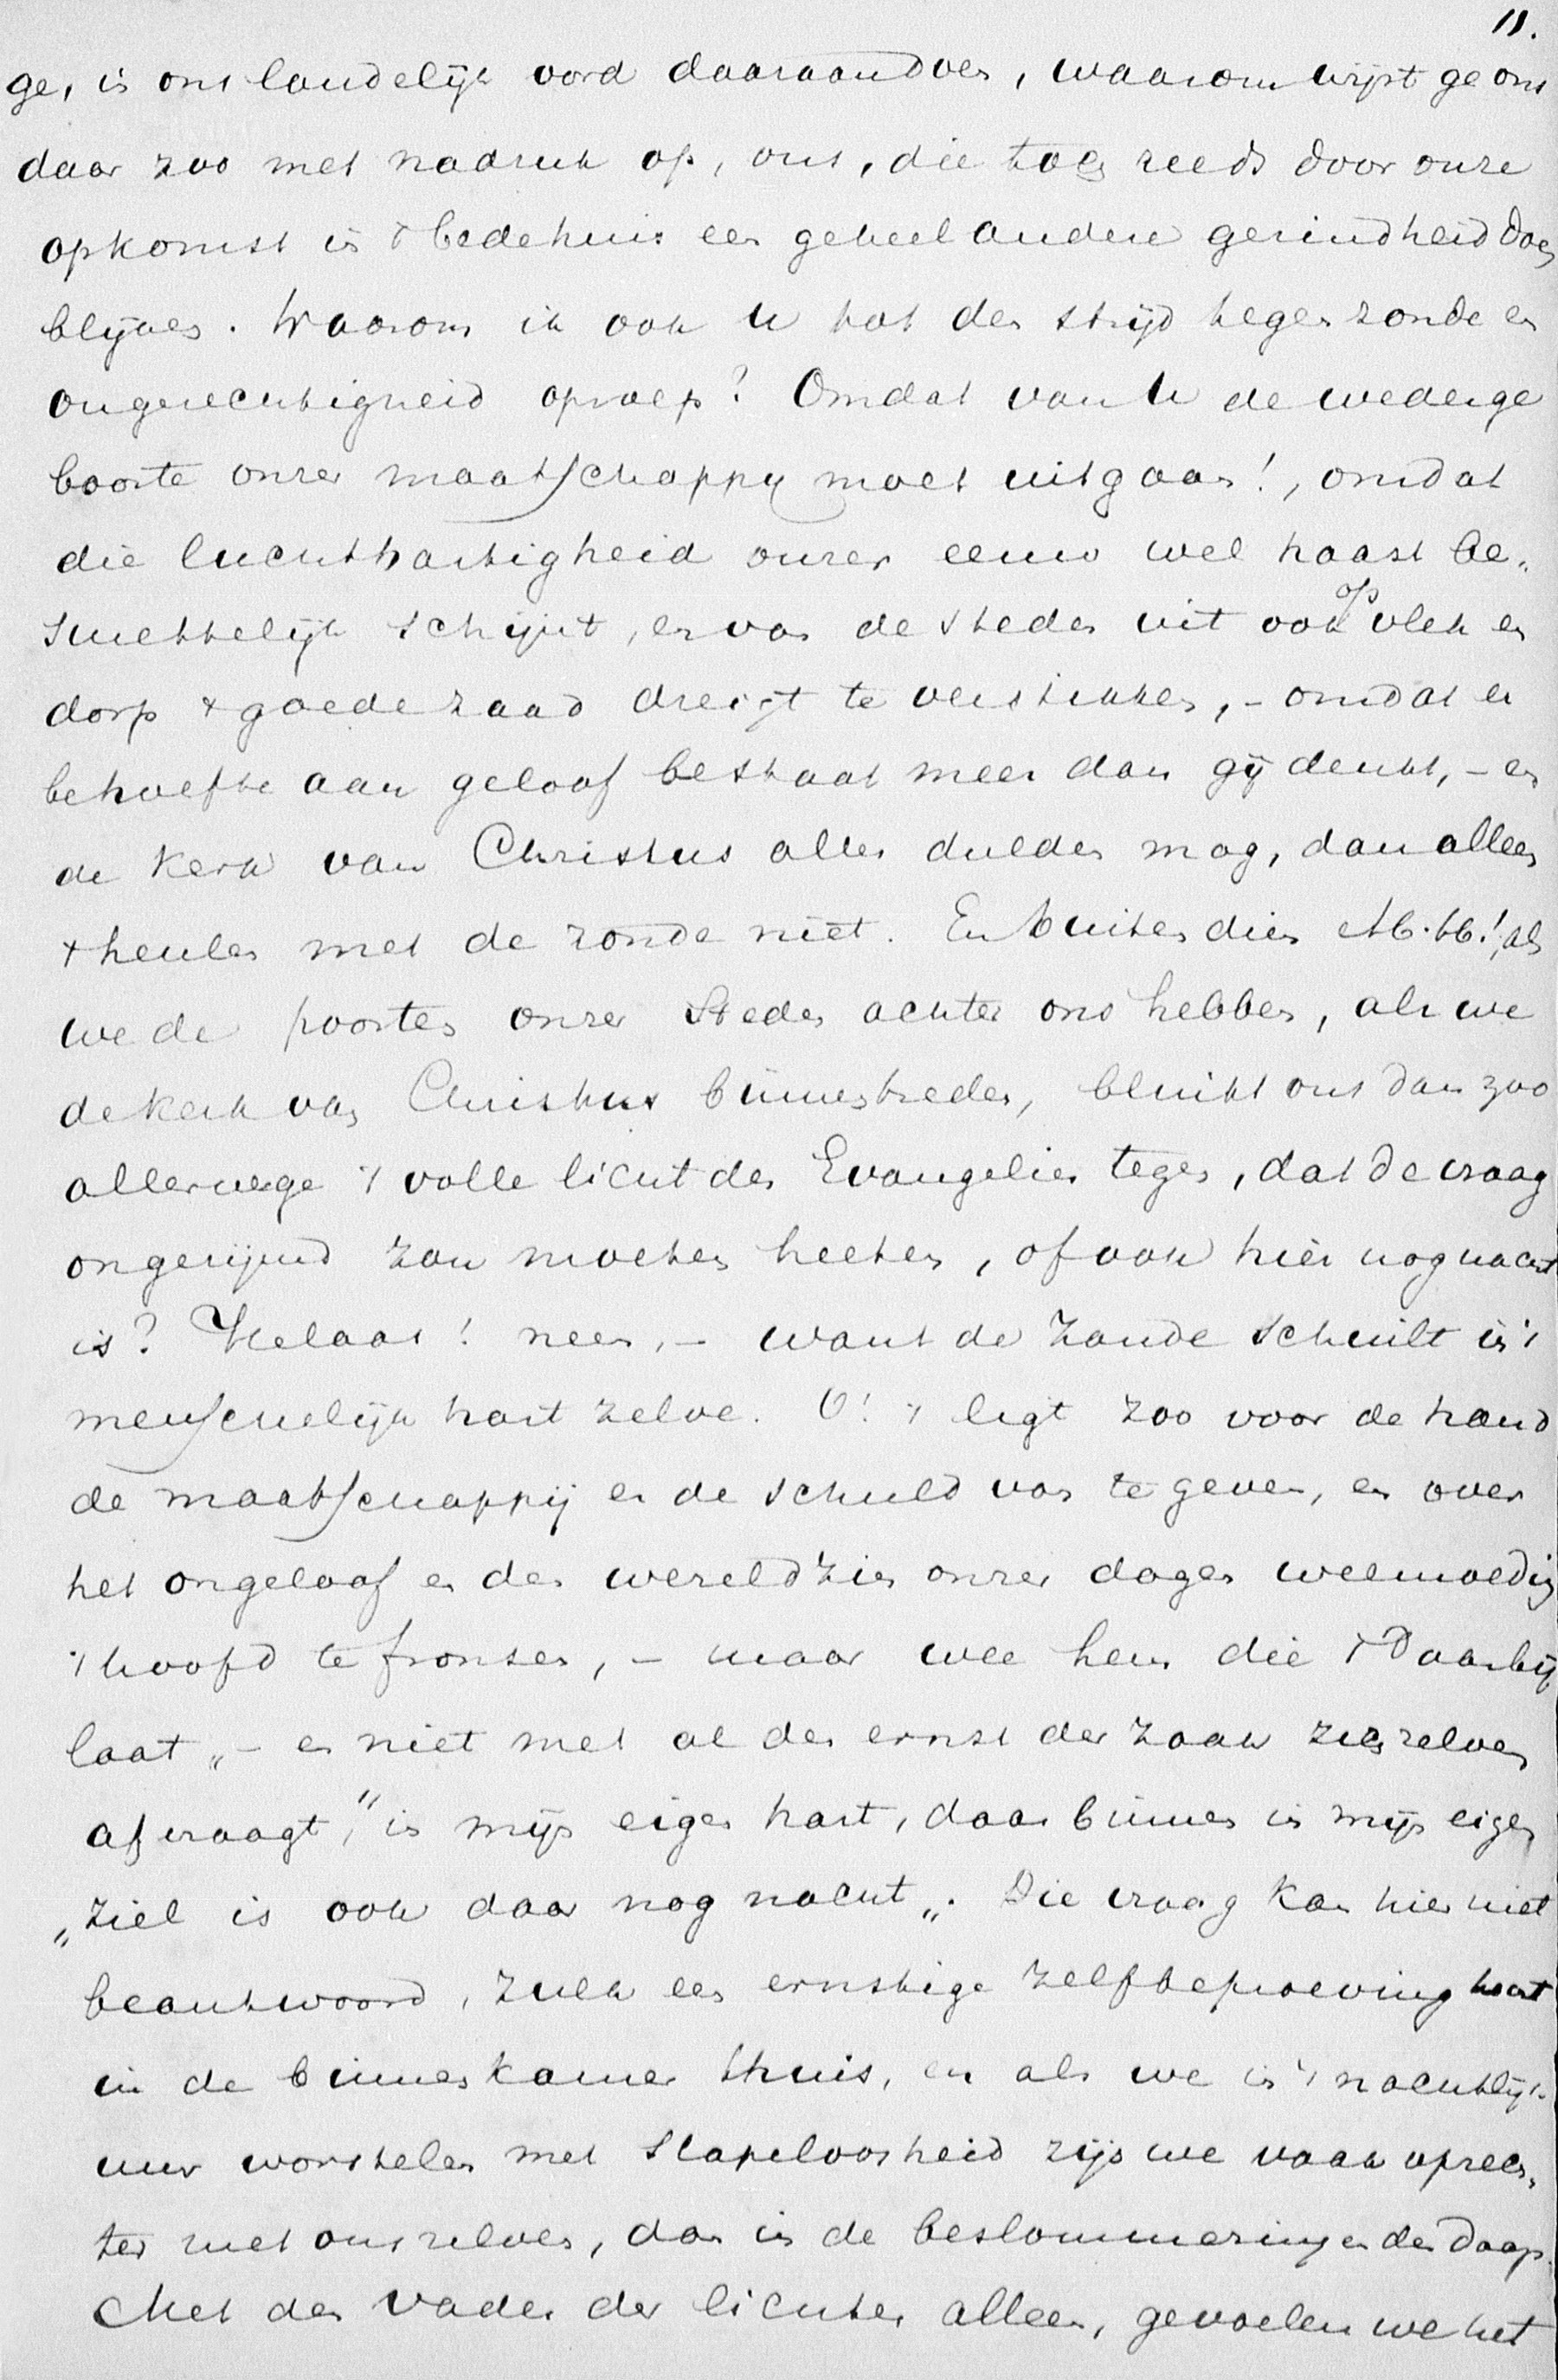 11.
ge, in ons landelijk oord daaraan doen, waarom wijst ge ons
daar zoo met nadruk op, ons, die toch reeds door onze
opkomst in 't bedehuis een geheel andere gezindheid doen
blijken. Waarom ik ook U tot den strijd tegen zonde en
ongerechtigheid oproep? Omdat van U de wederge
boorte onzer maatschappij moet uitgaan!, omdat
die luchthartigheid onzer eeuw wel haast be„
smettelijk schijnt, en van de steden uit ook op vlek en
dorp 't goede zaad dreigt te verstikken, - omdat er
behoefte aan geloof bestaat meer dan gij denkt, - en
de Kerk van Christus alles dulden mag, dan alleen
't heulen met de zonde niet. En buitendien M.H.!, als
we de poorten onzer Steden achter ons hebben, als we
de kerk van Christus binnentreden, blinkt ons dan zoo
allerwege 't volle licht des Evangelies tegen, dat de vraag
ongerijmd zou moeten heeten, of ook hier nog nacht
is? Helaas! neen, - want de Zonde schuilt in 't
menschelijk hart zelve. O! 't ligt zoo voor de hand
de maatschappij er de schuld van te geven, en over
het ongeloof en den wereldzin onzer dagen weemoedig
't hoofd te fronsen, - maar wee hem die 't daarbij
laat„ - en niet met al den ernst der zaak zich zelven
afvraagt, "in mijn eigen hart, daar binnen in mijn eigen
„ziel is ook daar nog nacht„. Die vraag kan hier niet
beantwoord, zulk een ernstige zelfbeproeving hoort
in de binnenkamer thuis, en als we in 't nachtlijk
uur worstelen met slapeloosheid zijn we vaak oprech„
ter met ons zelven, dan in de beslommeringen des daags.
Met den Vader der lichten alleen, gevoelen we het